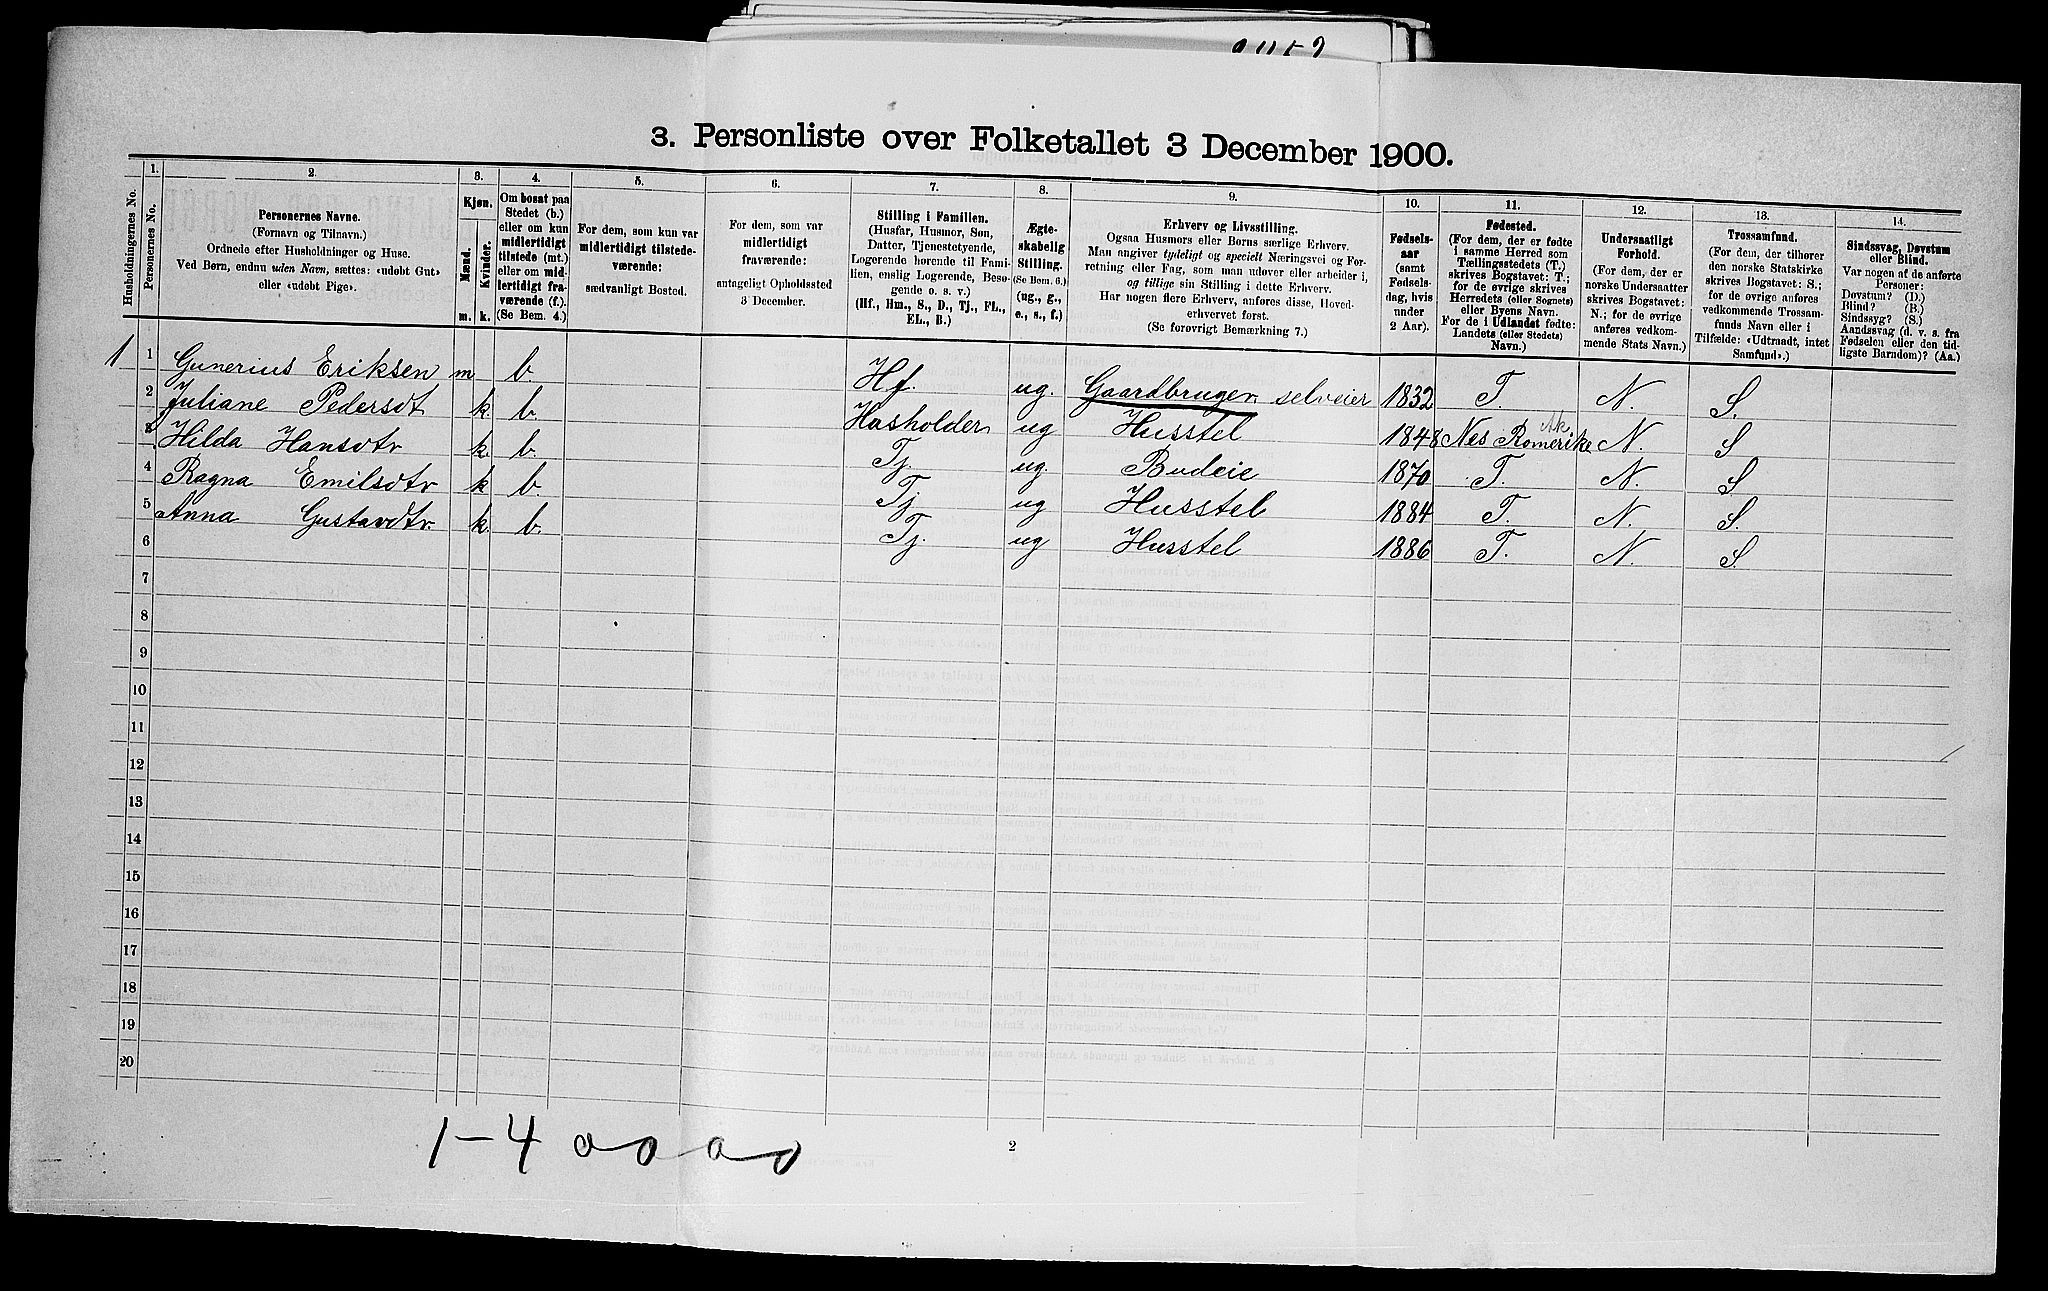 3. Personliste over Folketallet 3 December 1900.
Husholdningernes No.
1. Personernes No.
2. Personernes Navne.
(Fornavn og Tilnavn.)
Ordnede efter Husholdninger og Huse.
Ved Børn, endnu uden Navn, sættes: «udøbt Gut»
eller «udøbt Pige».
3. Kjøn.
Mænd. m.
Kvinder. k.
4. Om bosat paa
Stedet (b.)
eller om kun
midlertidigt
tilstede (mt.)
eller om mid-
lertidigt fra-
værende (f.).
(Se Bem. 4.)
5. For dem, som kun var
midlertidigt tilstede-
værende:
sædvanligt Bosted.
6. For dem, som var
midlertidigt
fraværende:
antageligt Opholdssted
3 December.
7. Stilling i Familien.
(Husfar, Husmor, Søn,
Datter, Tjenestetyende,
Logerende hørende til Fami-
lien, enslig Logerende, Besø-
gende o. s. v.)
(Hf., Hm., S., D., Tj., FL.,
EL., B.)
8. Ægte-
skabelig
Stilling.
(Se Bem. 6.)
(ug., g.,
e., s., f.)
9. Erhverv og Livsstilling.
Ogsaa Husmors eller Børns særlige Erhverv.
Man angiver tydeligt og specielt Næringsvei og For-
retning eller Fag, som man udøver eller arbeider i,
og tillige sin Stilling i dette Erhverv.
Har nogen flere Erhverv, anføres disse, Hoved-
erhvervet først.
(Se forøvrigt Bemærkning 7.)
10. Fødsels-
aar
(samt
Fødsels-
dag, hvis
under
2 Aar).
11. Fødested.
(For dem, der er fødte
i samme Herred som
Tællingsstedets (T.)
skrives Bogstavet: T.;
for de øvrige skrives
Herredets (eller Sognets)
eller Byens Navn.
For de i Udlandet fødte:
Landets (eller Stedets)
Navn.)
12. Undersaatligt
Forhold.
(For dem, der er
norske Undersaatter
skrives Bogstavet:
N.; for de øvrige
anføres vedkom-
mende Stats Navn.)
13. Trossamfund.
(For dem, der tilhører
den norske Statskirke
skrives Bogstavet: S.;
for de øvrige anføres
vedkommende Trossam-
funds Navn eller i
Tilfælde: «Udtraadt, intet
Samfund».)
14. Sindssvag, Døvstum
eller Blind.
Var nogen af de anførte
Personer:
Døvstum? (D.)
Blind? (B.)
Sindssyg? (S.)
Aandssvag (d. v. s. fra
Fødselen eller den tid-
ligste Barndom)? (Aa.)
1 1 Gunerius Eriksen m b. Hf. ug. Gaardbruger selveier 1832 T. N. S.
2 Juliane Pedersdt k. b. Husholder ug Husstel 1848 Nes Romerike Ak N. S
3 Hilda Hansdtr k. b. Tj. ug. Budeie 1870 T. N. S
4 Ragna Emilsdtr k b. Tj ug Husstel 1884 T. N. S.
5 Anna Gustavdtr. k. b. Tj. ug Husstel 1886 T. N. S.
6
7
8
9
10
11
12
13
14
15
16
17
18
19
20
1-4 0 0 0 0
2